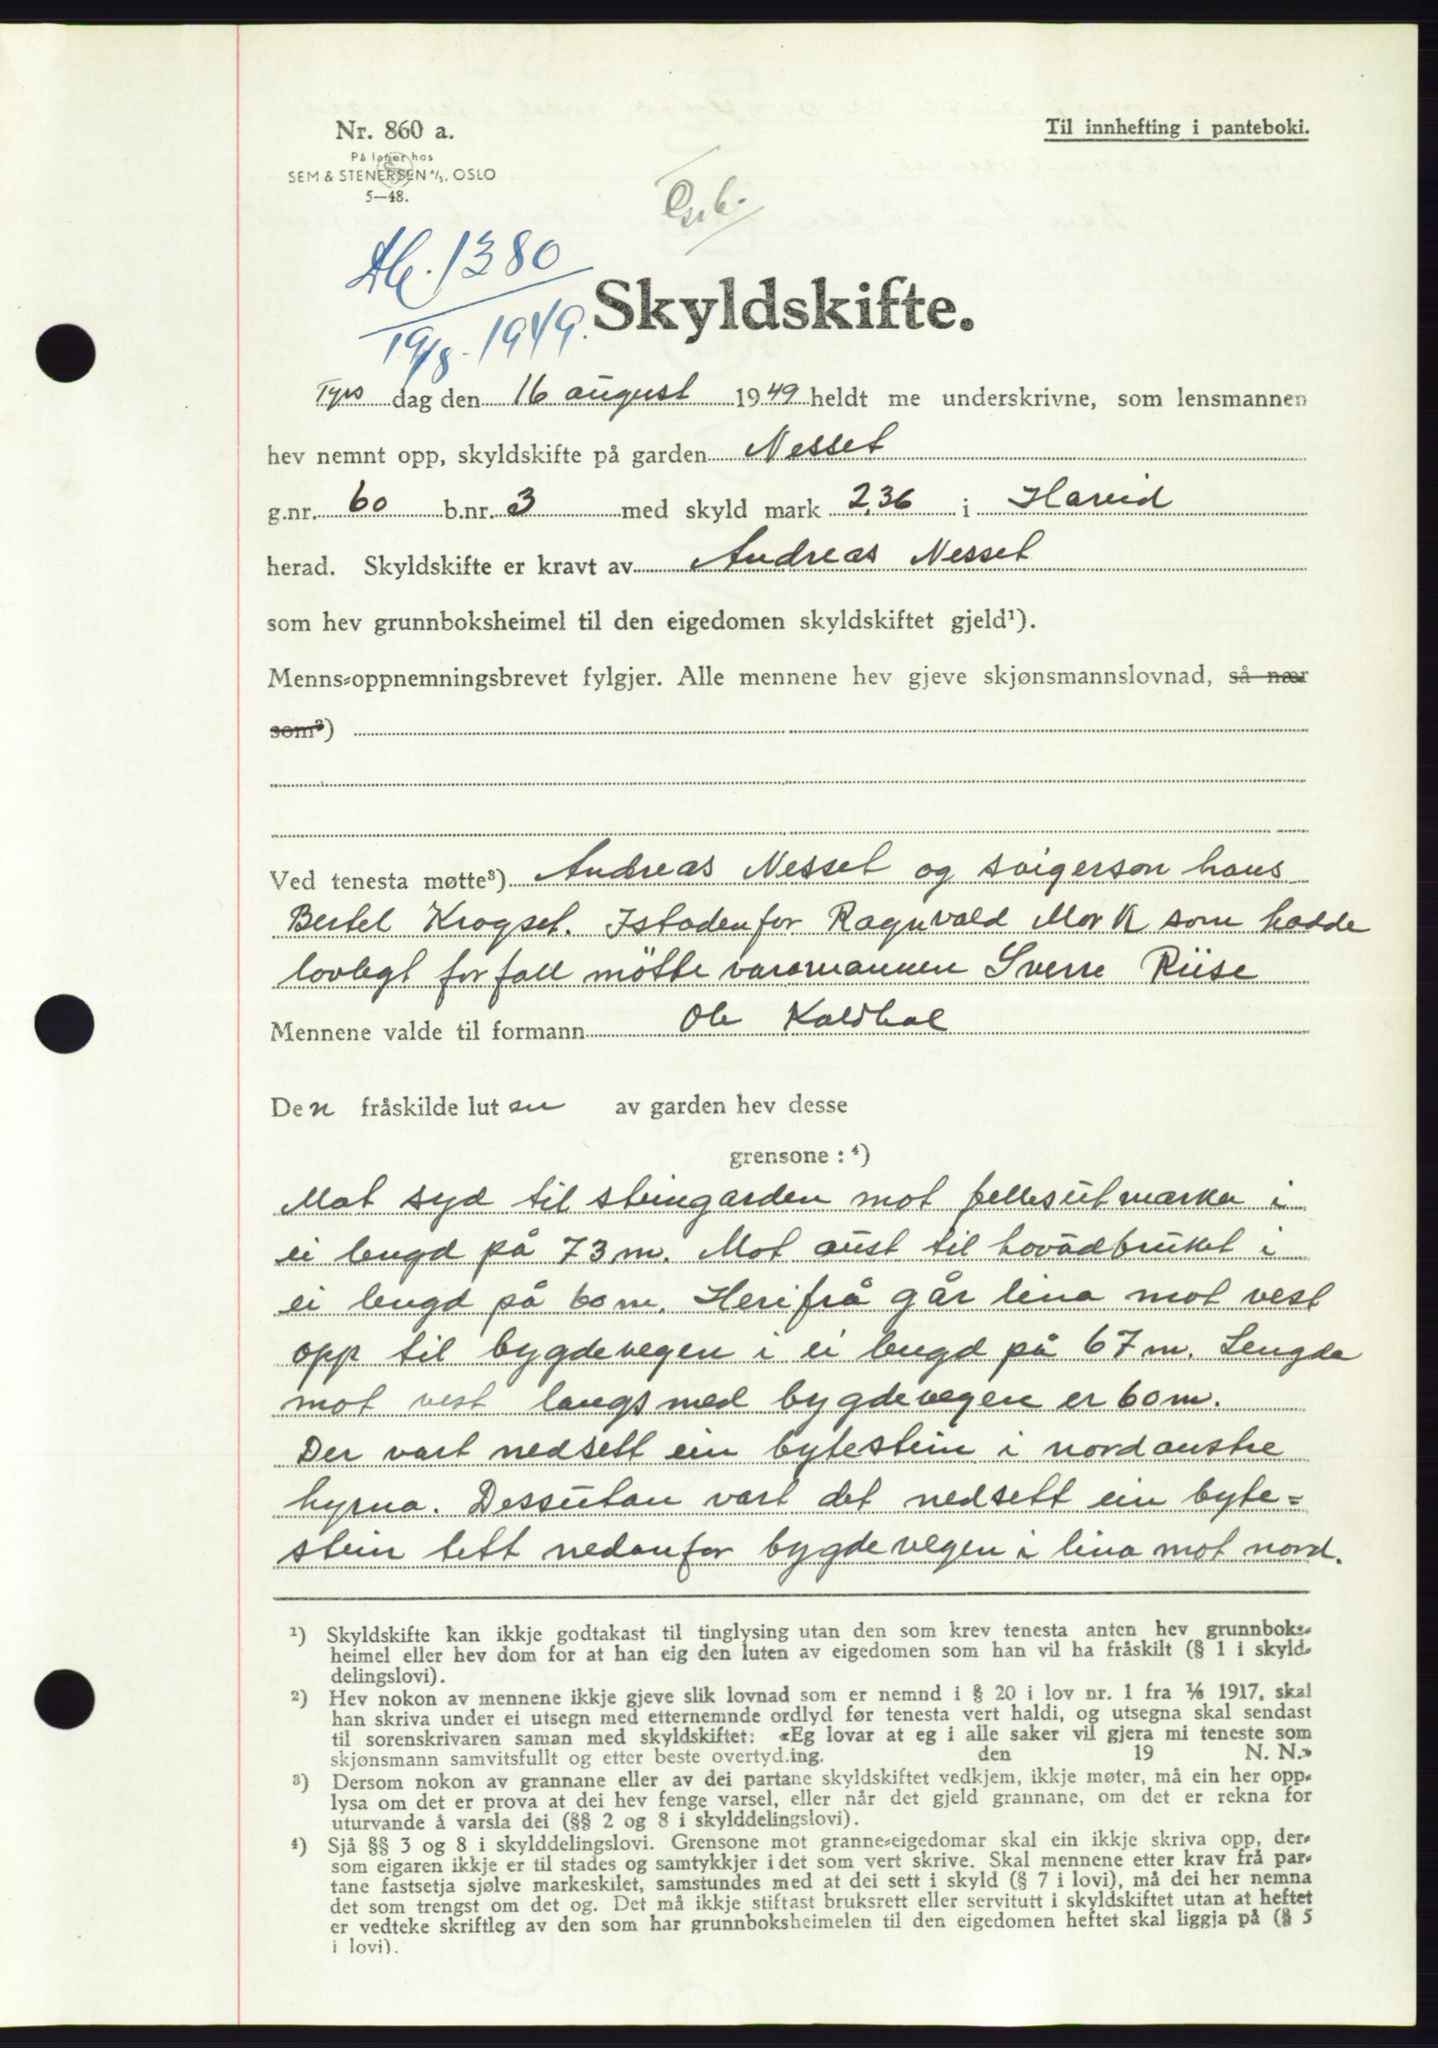 Nr. 860 a.
På lager hos
SEM & STENERSEN A/S, OSLO
5—48.
Til innhefting i panteboki.
Db. 1380
19/8. 1949.
Skyldskifte.
Tyrs dag den 16 august 1949 heldt me underskrivne, som lensmannen
hev nemnt opp, skyldskifte på garden Nesset
g.nr. 60 b.nr. 3 med skyld mark 2,36 i Hareid
herad. Skyldskifte er kravt av Andreas Nesset
som hev grunnboksheimel til den eigedomen skyldskiftet gjeld¹).
Menns-oppnemningsbrevet fylgjer. Alle mennene hev gjeve skjønsmannslovnad, så nær
som²)
Ved tenesta møtte³) Andreas Nesset og svigerson hans
Bertel Krogset. Istadenfor Ragnvald Mork som hadde
lovlegt forfall møtte varamannen Sverre Riise
Mennene valde til formann Ole Kaldhol
Den fråskilde luten av garden hev desse
grensone: ⁴)
Mot syd til steingarden mot fellesutmarka i
ei lengd på 73 m. Mot aust til hovudbruket i
ei lengd på 60 m. Herifrå går lina mot vest
opp til bygdevegen i ei lengd på 67 m. Lengda
mot vest langs med bygdevegen er 60 m.
Der vart nedsett ein bytestein i nordaustre
hyrna. Dessutan vart det nedsett ein byte=
stein tett nedanfor bygdevegen i lina mot nord.
¹) Skyldskifte kan ikkje godtakast til tinglysing utan den som krev tenesta anten hev grunnboks-
heimel eller hev dom for at han eig den luten av eigedomen som han vil ha fråskilt (§ 1 i skyld-
delingslovi).
²) Hev nokon av mennene ikkje gjeve slik lovnad som er nemnd i § 20 i lov nr. 1 fra 1/6 1917, skal
han skriva under ei utsegn med etternemnde ordlyd før tenesta vert haldi, og utsegna skal sendast
til sorenskrivaren saman med skyldskiftet: «Eg lovar at eg i alle saker vil gjera mi teneste som
skjønsmann samvitsfullt og etter beste overtyd.ing. den 19 N. N.»
³) Dersom nokon av grannane eller av dei partane skyldskiftet vedkjem, ikkje møter, må ein her opp-
lysa om det er prova at dei hev fenge varsel, eller når det gjeld grannane, om det er rekna for
uturvande å varsla dei (§§ 2 og 8 i skylddelingslovi).
⁴) Sjå §§ 3 og 8 i skylddelingslovi. Grensone mot granne-eigedomar skal ein ikkje skriva opp, der-
som eigaren ikkje er til stades og samtykkjer i det som vert skrive. Skal mennene etter krav frå par-
tane fastsetja sjølve markeskilet, samstundes med at dei sett i skyld (§ 7 i lovi), må dei her nemna
det som trengst om det og. Det må ikkje stiftast bruksrett eller servitutt i skyldskiftet utan at heftet
er vedteke skriftleg av den som har grunnboksheimelen til den eigedomen heftet skal liggja på (§ 5
i lovi).